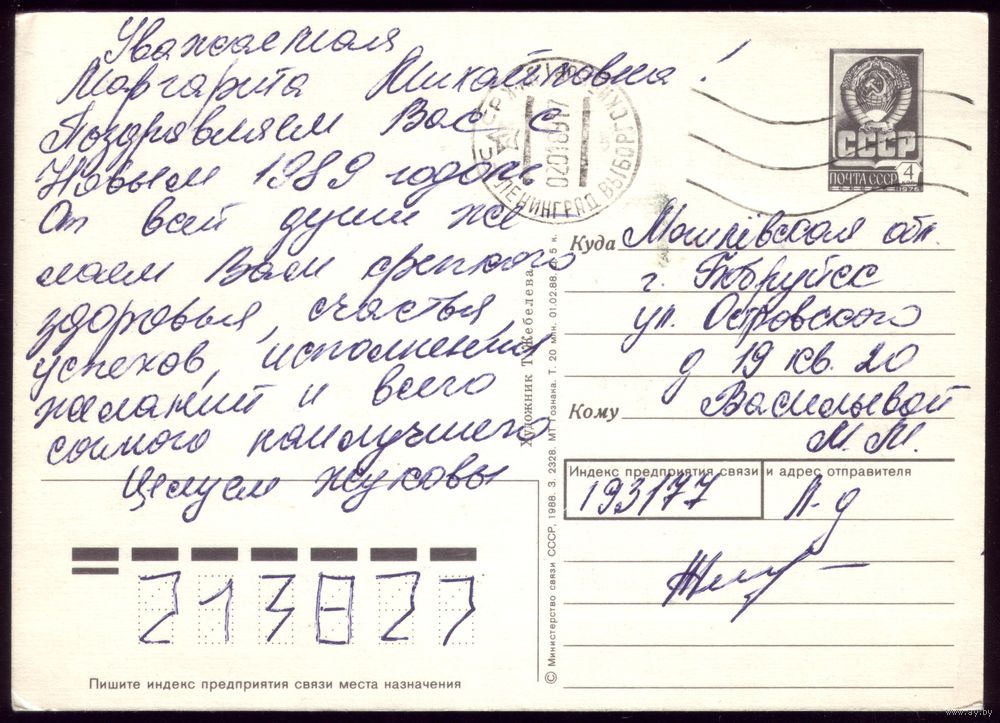 Уважаемая
Маргарита Михайловна!
Поздравляем Вас с
Новым 1989 годом
От всей души же
лаем Вам крепкого
здоровья, счастья,
успехов, исполнения
желаний и всего
самого наилучшего
Целуем Жуковы
СССР
ПОЧТА СССР
4
1976
ЛЕНИНГРАД ВЫБОРГСКИЙ
Куда Могилёвская обл.
г. Бобруйск
ул. Островского
д 19 кв. 20
Кому Васильевой
М. М.
Индекс предприятия связи и адрес отправителя
193177 Л-д
213827
Пишите индекс предприятия связи места назначения
Художник Т. Жебелева
© Министерство связи СССР, 1988. З. 2328. МТ Гознака. Т. 20 млн. 01.02.88. Ц. 5 к.
www.ay.by